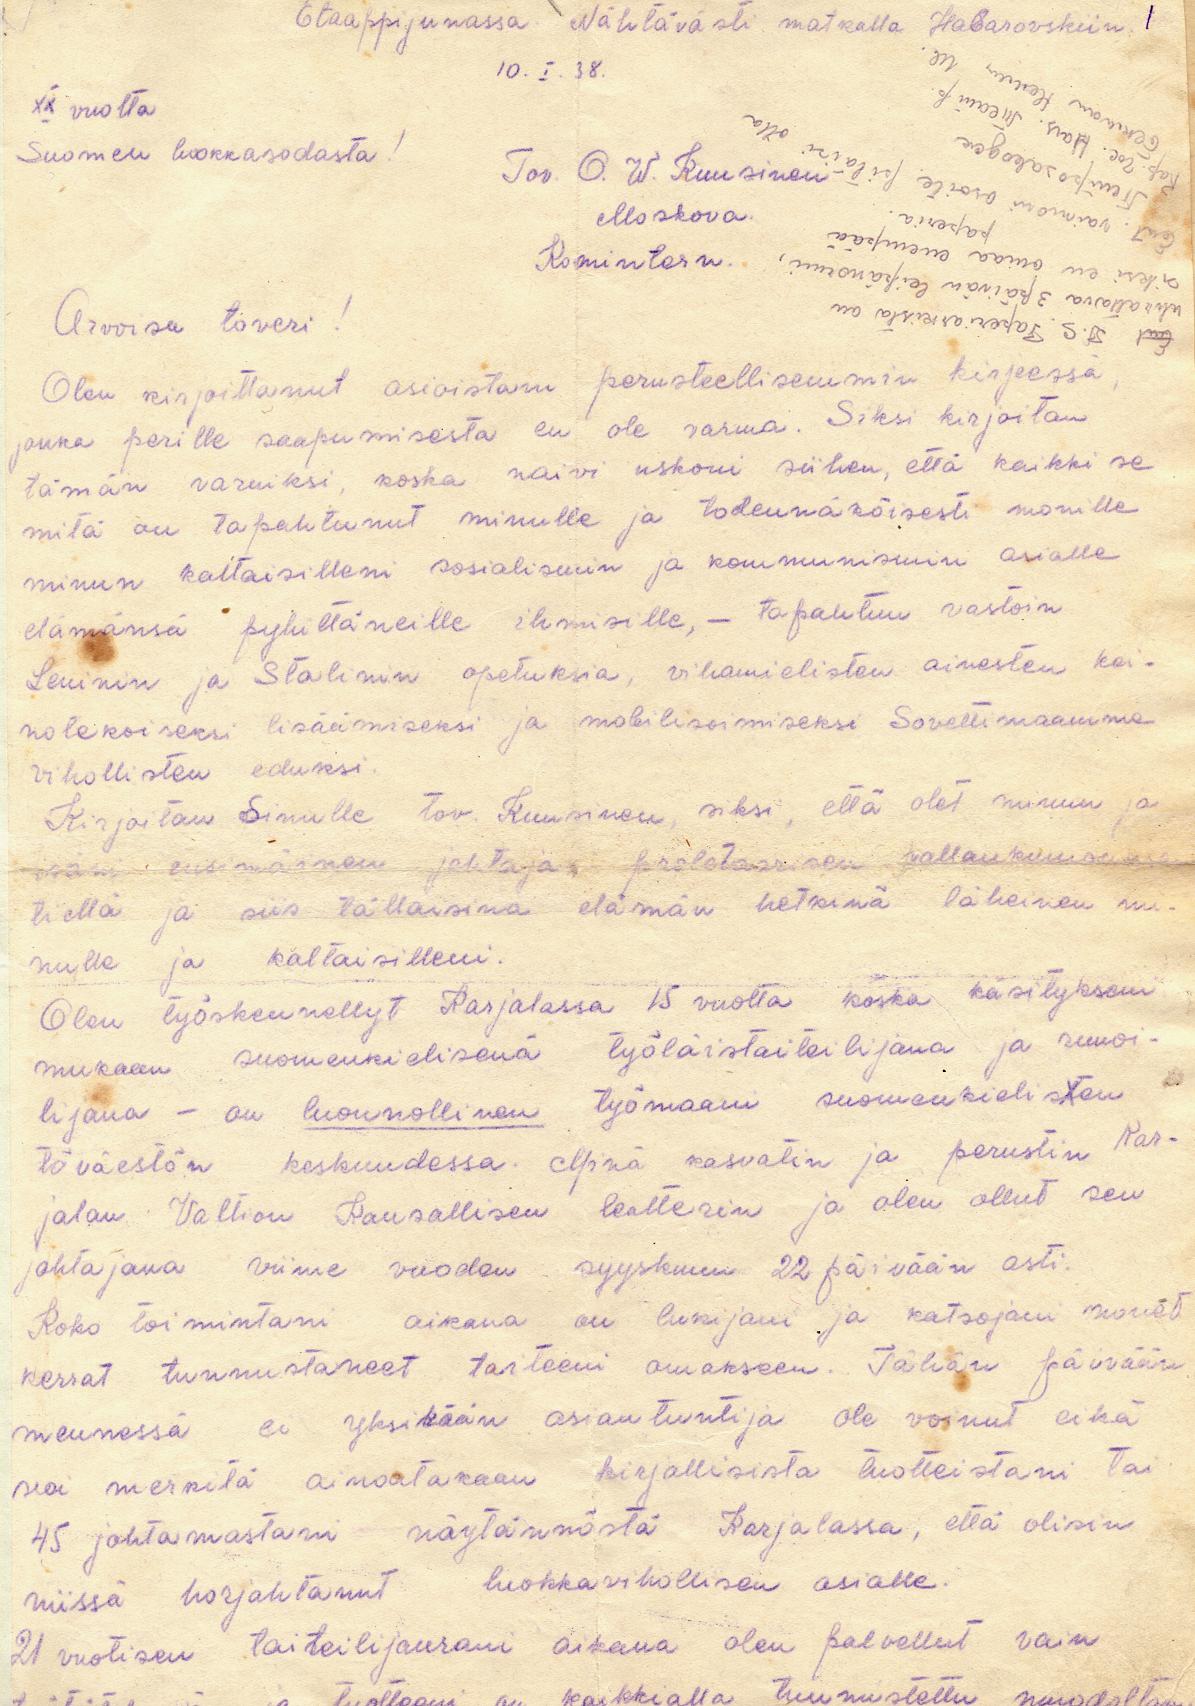 Etaappijunassa. Nähtävästi matkalla Habarovskiin. 1
10. I. 38.
XX vuotta
Suomen luokkasodasta!
Tov. O. W. Kuusinen
Moskova.
Komintern.
P.S. Paperiarkista on
uhrattava 3 päivän leipänormi,
siksi en omaa enempää
paperia.
vaimoni osoite pitäisi olla
Arvoisa toveri!
Olen kirjoittanut asioistani perusteellisemmin kirjeessä,
jonka perille saapumisesta en ole varma. Siksi kirjoitan
tämän varmiksi, koska naivi uskoni siihen, että kaikki se
mitä on tapahtunut minulle ja todennäköisesti monille
minun kaltaisilleni sosialismin ja kommunismin asialle
elämänsä pyhittäneille ihmisille, – tapahtuu vastoin
Leninin ja Stalinin opetuksia, vihamielisten ainesten kei-
nolekoiseksi lisäämiseksi ja mobilisoimiseksi Sovettimaamme
vihollisten eduksi.
Kirjoitan Sinulle tov. Kuusinen, siksi, että olet minun ja
isäni ensimäinen johtaja, proletaarisen vallankumouksen
tiellä ja siis tällaisina elämän hetkinä läheinen mi-
nulle ja kaltaisilleni.
Olen työskennellyt Karjalassa 15 vuotta koska käsitykseni
mukaan suomenkielisenä työläistaiteilijana ja runoi-
lijana – on luonnollinen työmaani suomenkielisten
töväestön keskuudessa. Minä kasvatin ja perustin Kar-
jalan Valtion Kansallisen teatterin ja olen ollut sen
johtajana viime vuoden syyskuun 22 päivään asti.
Koko toimintani aikana on lukijani ja katsojani monet
kerrat tunnustaneet taiteeni omakseen. Tähän päivään
mennessä ei yksikään asiantuntija ole voinut eikä
voi merkitä ainoatakaan kirjallisista tuotteistani tai
45 johtamastani näytännöstä Karjalassa, että olisin
niissä horjahtanut luokkavihollisen asialle.
21 vuotisen taiteilijaurani aikana olen palvellut vain
tuotteeni on kaikkialla tunnustettu